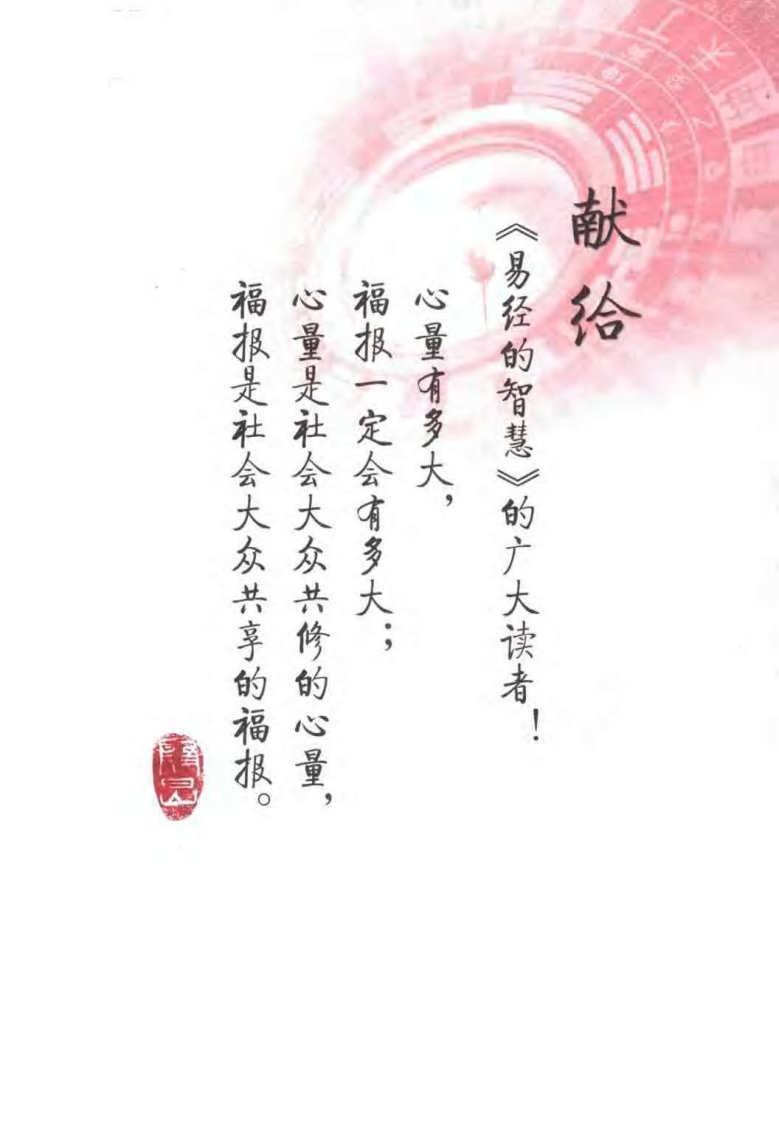 献给
《易经的智慧》的广大读者！
心量有多大，
福报一定会有多大；
心量是社会大众共修的心量，
福报是社会大众共享的福报。